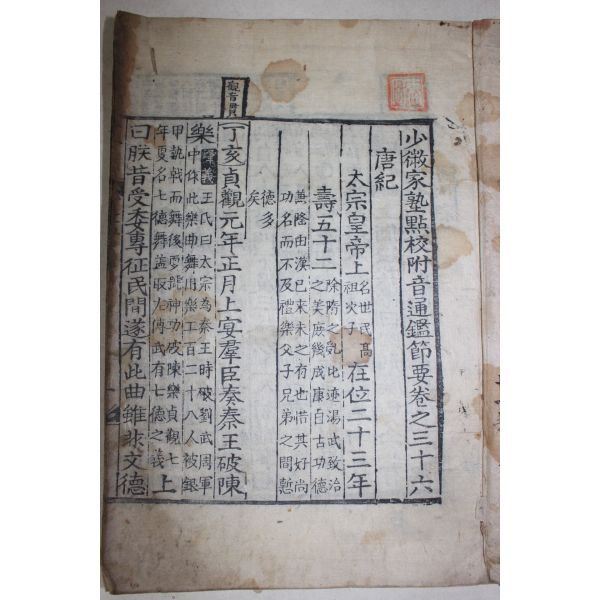 少微家塾點校附音通鑑節要卷之三十六
唐紀
太宗皇帝上 名世民高祖次子 在位二十三年
壽五十二 除隋之亂比迹湯武致治之美庶幾成康自古功德
兼隆由漢已来未之有也惜其好尚功名而不及禮樂父子兄弟之間慙
德多矣
觀音賛
丁亥貞觀元年正月上宴羣臣奏秦王破陳
樂 釋義 王氏曰太宗為秦王時破劉武周軍中作此樂曲舞用樂工百二十八人被銀
甲執戟而舞後更號神功破陳樂貞觀七年更名七德舞盖取左傳武有七德之義 上
曰朕昔受委專征民間遂有此曲雖非文德